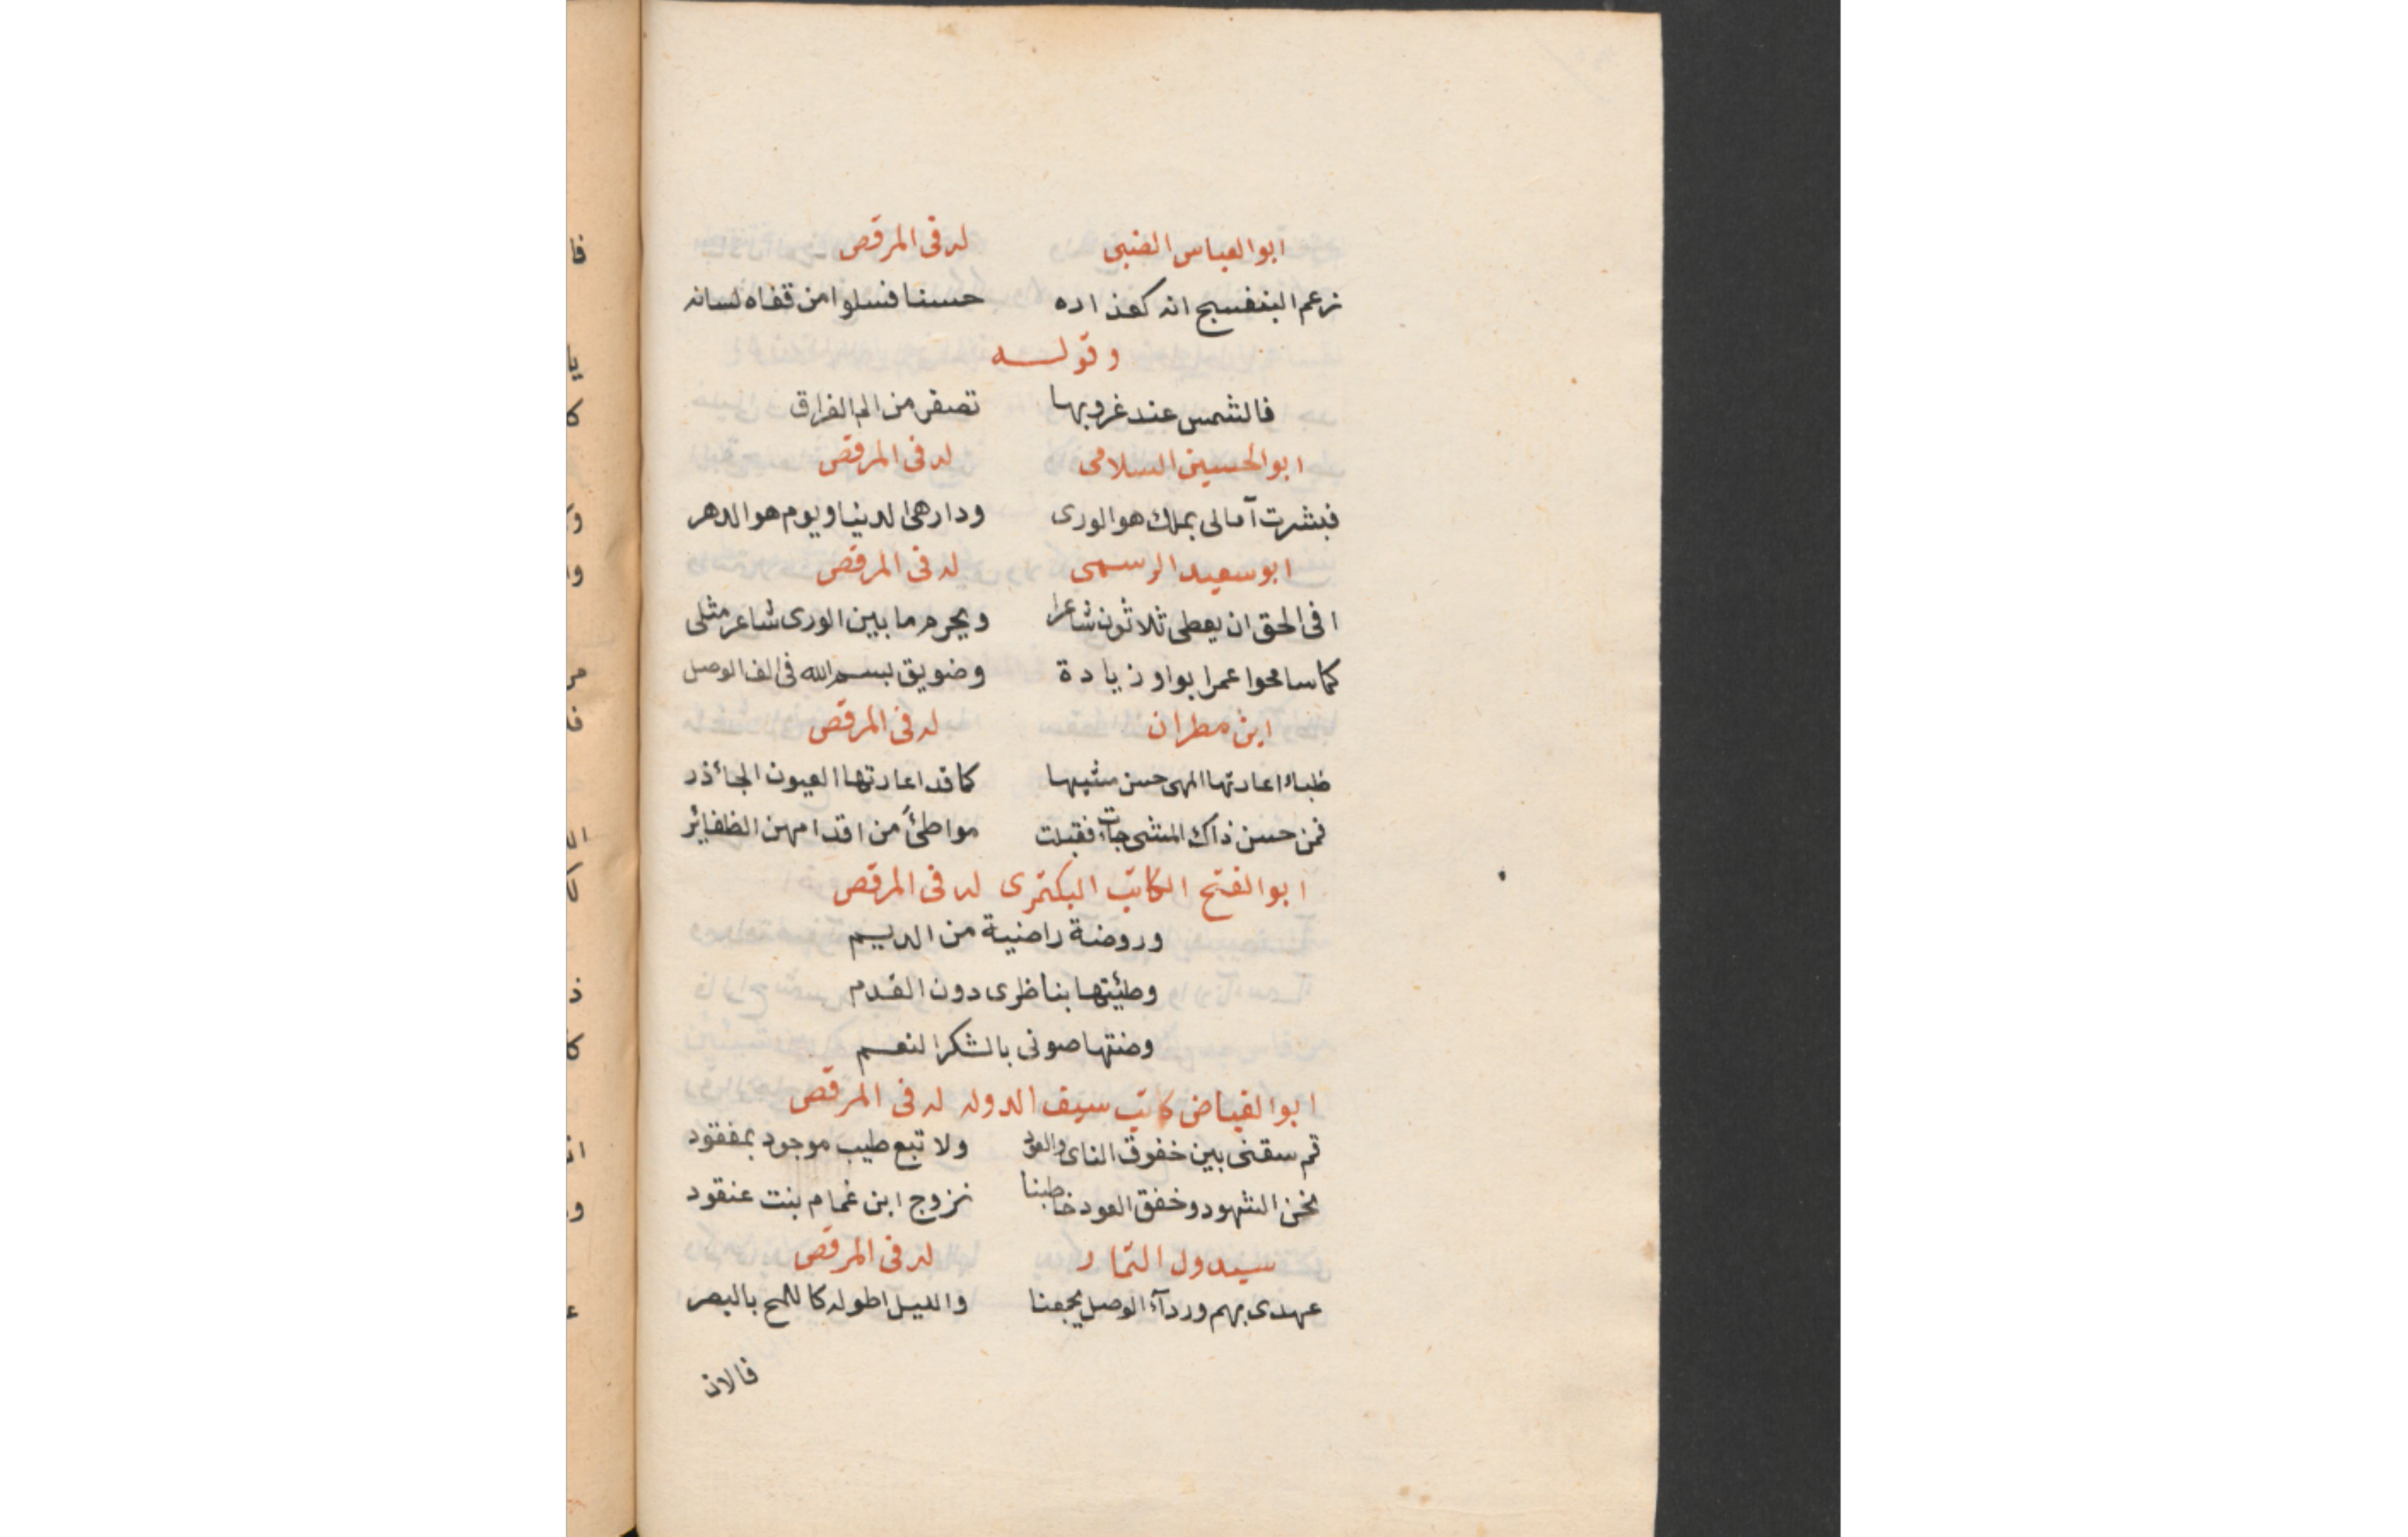 ابو العباس الضبى له فى المرقص
زعم البنفسج انه كعذاره حسنا فسلوا من قفاه لسانه
وقوله
فالشمس عند غروبها تصفر من الم الفراق
ابو الحسين السلامى له فى المرقص
فبشرت آمالى بملك هو الورى ودار هى الدنيا ويوم هو الدهر
ابو سعيد الرسمى له فى المرقص
افى الحق ان يعطى ثلاثون شاعرا ويحرم ما بين الورى شاعر مثلى
كما سامحوا عمرا بواو زيادة وضويق بسم الله فى الف الوصل
ابن مطران له فى المرقص
ظباء اعارتها المهى حسن مشيها كما قد اعارتها العيون الجآئذر
فمن حسن ذاك المشى جاءت فقبلت مواطئا من اقدامهن الظفائر
ابو الفتح الكاتب البكتمرى له فى المرقص
وروضة راضية من الديم
وطيئتها بناظرى دون القدم
وصنتها صونى بالشكر النعم
ابو الفياض كاتب سيف الدوله له فى المرقص
قم سقنى بين خفوق الناى والعود ولا تبع طيب موجود بمفقود
نحن الشهود وخفق العود خاطبنا نزوج ابن غمام بنت عنقود
سيدول التمار له فى المرقص
عهدى بهم وردآء الوصل يجمعنا والليل اطوله كاللمح بالبصر
فالان